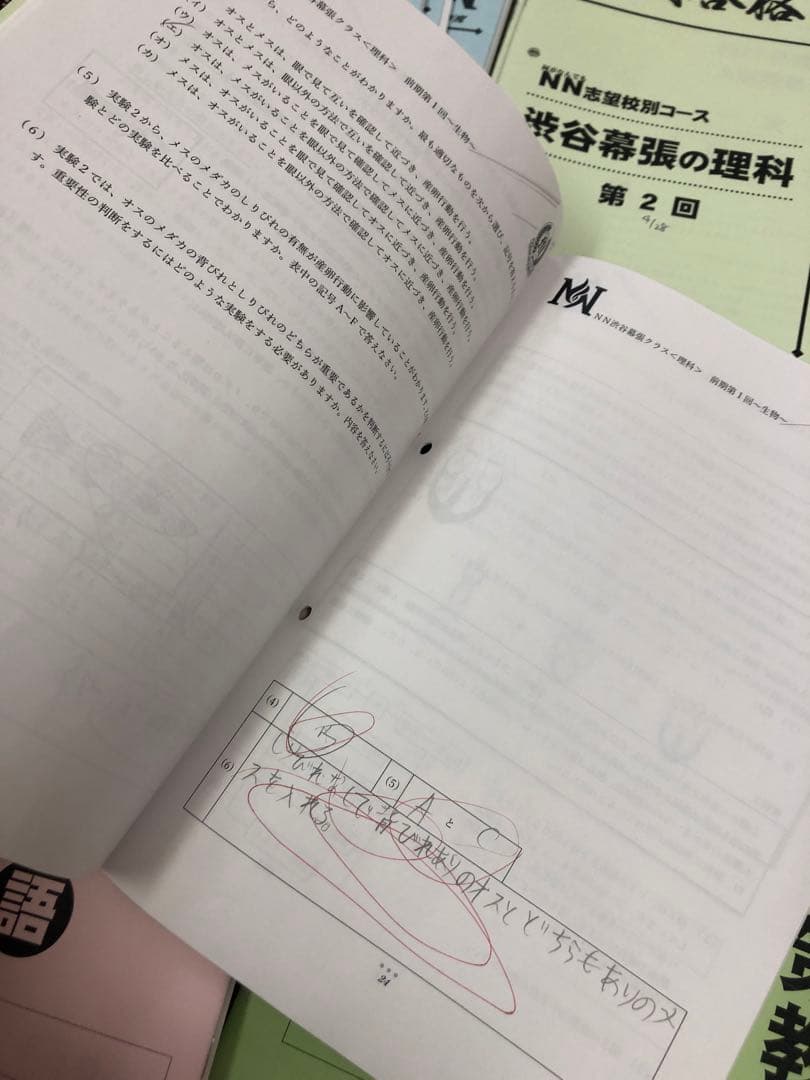 NN渋谷幕張クラス<理科> 前期第1回~生物~
ら、どのようなことがわかりますか。最も適切なものを次から選び、記号で答えなさい。
(イ) オスとメスは、眼で見て互いを確認して近づき、産卵行動を行う。
(ウ) オスとメスは、眼以外の方法で互いを確認して近づき、産卵行動を行う。
(エ) オスは、メスがいることを眼で見て確認してメスに近づき、産卵行動を行う。
(オ) オスは、メスがいることを眼以外の方法で確認してメスに近づき、産卵行動を行う。
メスは、オスがいることを眼で見て確認してオスに近づき、産卵行動を行う。
(カ) メスは、オスがいることを眼以外の方法で確認してオスに近づき、産卵行動を行う。
(5) 実験2から、メスのメダカのしりびれの有無が産卵行動に影響していることがわかります。
験とどの実験を比べることでわかりますか。表中の記号A~Fで答えなさい。
(6) 実験2では、オスのメダカの背びれとしりびれのどちらが重要であるかを判断する
す。重要性の判断をするにはどのような実験をする必要がありますか。内容を答えなさい。
NN志望校別コース
渋谷幕張の理科
第2回
4/28
NN渋谷幕張クラス<理科> 前期第1回~生物~
(4)
(5) A と C
(6) しりびれなしで背びれありのオスとどちらもありのメ
スを入れる。
24
語